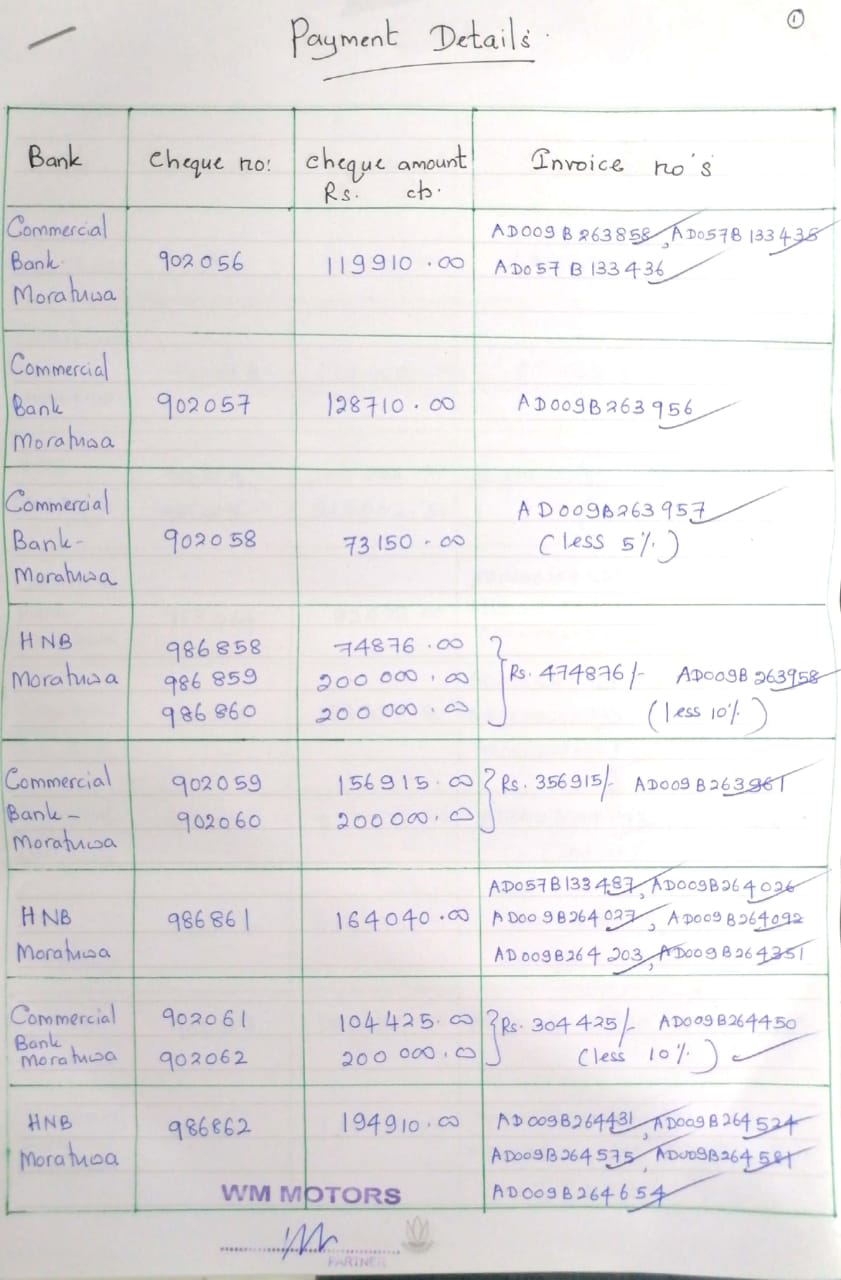 ①
Payment Details.
Bank Cheque no: cheque amount Invoice no's
Rs. cts.
Commercial Bank- Moratuwa
902056
119910.00
AD009B263858, AD057B133435
AD057B133436
Commercial Bank Moratuwa
902057
128710.00
AD009B263956
Commercial Bank- Moratuwa
902058
73150.00
AD009B263957
(less 5%)
HNB Moratuwa
986858 74876.00
986859 200000.00
986860 200000.00
Rs. 474876/- AD009B263958
(less 10%)
Commercial Bank- Moratuwa
902059 156915.00
902060 200000.00
Rs. 356915/- AD009B263961
HNB Moratuwa
986861
164040.00
AD057B133487, AD009B264026
AD009B264027, AD009B264092
AD009B264203, AD009B264351
Commercial Bank Moratuwa
902061 104425.00
902062 200000.00
Rs. 304425/- AD009B264450
(less 10%)
HNB Moratuwa
986862
194910.00
AD009B264431, AD009B264524
AD009B264575, AD009B264581
AD009B264654
WM MOTORS
PARTNER